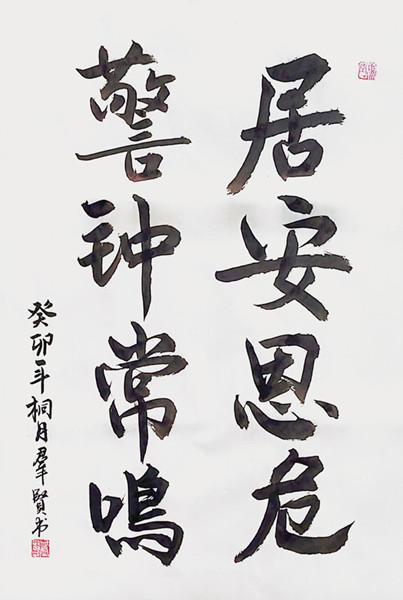 居安思危
警钟常鳴
癸卯年桐月羣賢书